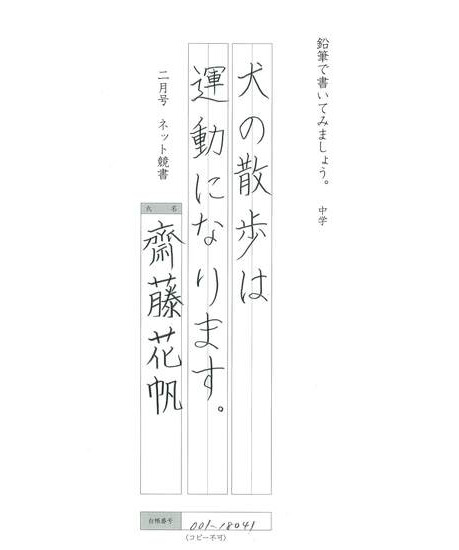 鉛筆で書いてみましょう。 中学
犬の散歩は
運動になります。
二月号 ネット競書
氏 名
齋藤花帆
台帳番号 001-18041
(コピー不可)